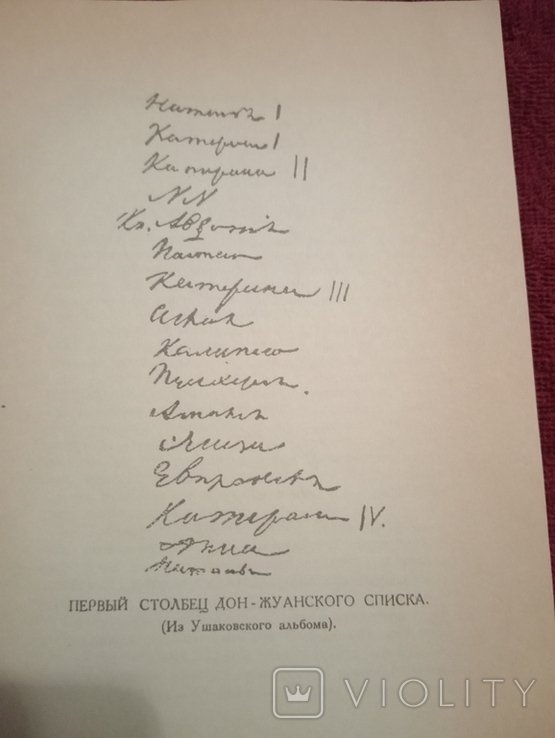 Наталья I
Катерина I
Катерина II
NN
Кн. Авдотья
Настасья
Катерина III
Аглая
Калипсо
Пулхерия.
Амалия
Элиза
Евпраксея
Катерина IV.
Анна
Наталья
ПЕРВЫЙ СТОЛБЕЦ ДОН-ЖУАНСКОГО СПИСКА.
(Из Ушаковского альбома).
VIOLITY